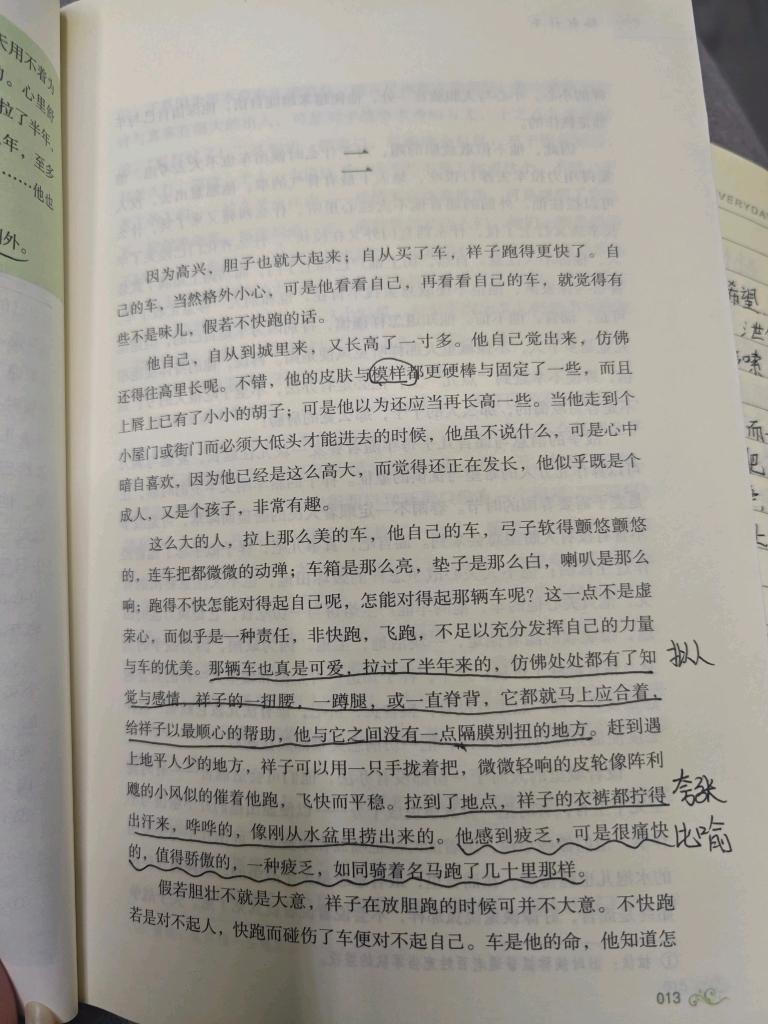 天用不着为
心里的
拉了半年、
年，至多
……他也
外。
二
因为高兴，胆子也就大起来；自从买了车，祥子跑得更快了。自
己的车，当然格外小心，可是他看看自己，再看看自己的车，就觉得有
些不是味儿，假若不快跑的话。
他自己，自从到城里来，又长高了一寸多。他自己觉出来，仿佛
还得往高里长呢。不错，他的皮肤与模样都更硬棒与固定了一些，而且
上唇上已有了小小的胡子；可是他以为还应当再长高一些。当他走到个
小屋门或街门而必须大低头才能进去的时候，他虽不说什么，可是心中
暗自喜欢，因为他已经是这么高大，而觉得还正在发长，他似乎既是个
成人，又是个孩子，非常有趣。
这么大的人，拉上那么美的车，他自己的车，弓子软得颤悠颤悠
的，连车把都微微的动弹；车箱是那么亮，垫子是那么白，喇叭是那么
响；跑得不快怎能对得起自己呢，怎能对得起那辆车呢？这一点不是虚
荣心，而似乎是一种责任，非快跑，飞跑，不足以充分发挥自己的力量
与车的优美。那辆车也真是可爱，拉过了半年来的，仿佛处处都有了知
拟人
觉与感情，祥子的一扭腰，一蹲腿，或一直脊背，它都就马上应合着，
给祥子以最顺心的帮助，他与它之间没有一点隔膜别扭的地方。赶到遇
上地平人少的地方，祥子可以用一只手拢着把，微微轻响的皮轮像阵利
飕的小风似的催着他跑，飞快而平稳。拉到了地点，祥子的衣裤都拧得
夸张
出汗来，哗哗的，像刚从水盆里捞出来的。他感到疲乏，可是很痛快
比喻
的，值得骄傲的，一种疲乏，如同骑着名马跑了几十里那样。
假若胆壮不就是大意，祥子在放胆跑的时候可并不大意。不快跑
若是对不起人，快跑而碰伤了车便对不起自己。车是他的命，他知道怎
013
EVERYDA
希望